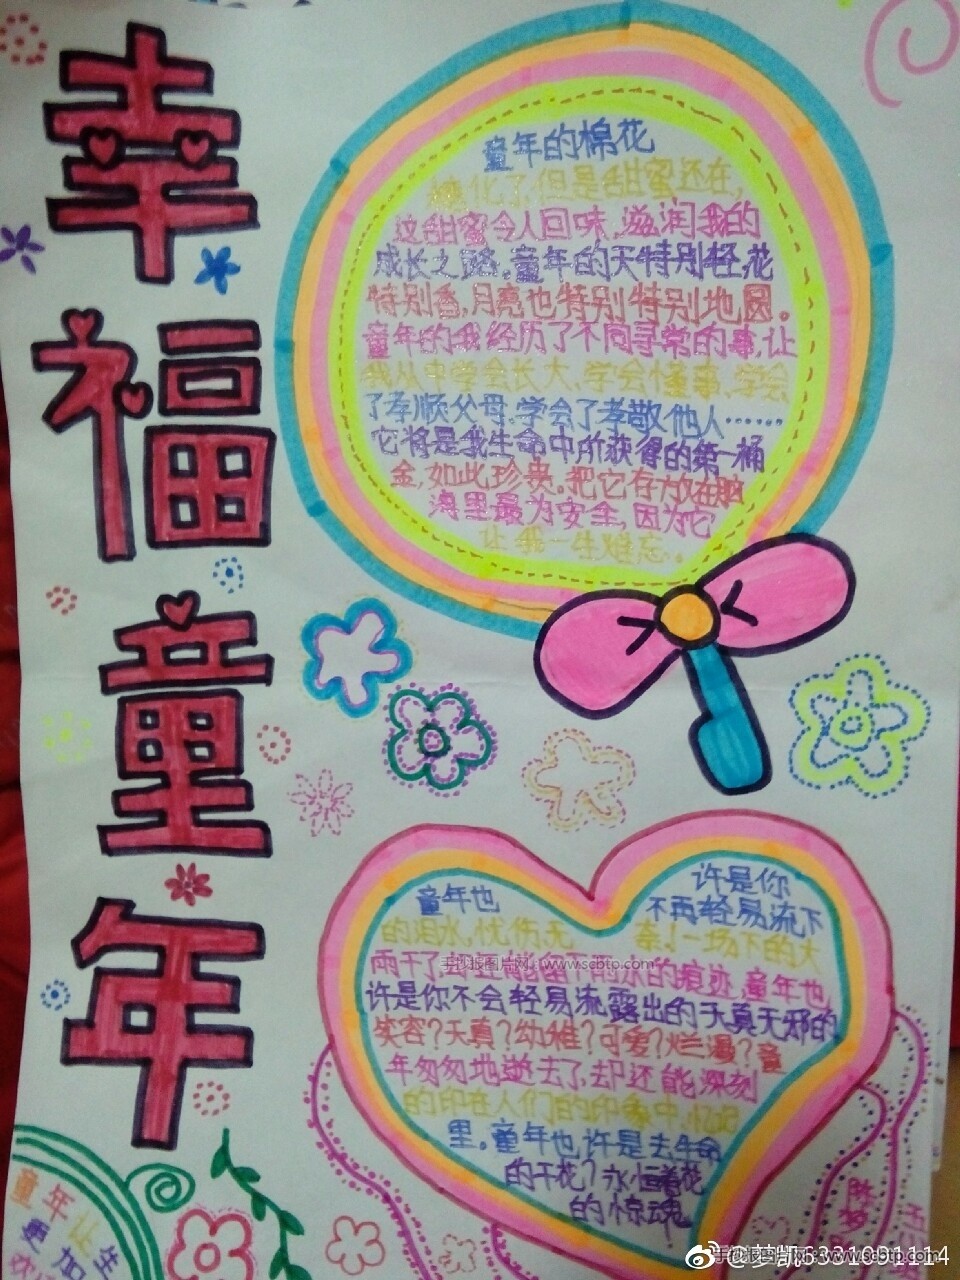 幸福童年
童年的棉花
糖化了,但是甜蜜还在,
这甜蜜令人回味,滋润我的
成长之路。童年的天特别轻,花
特别香,月亮也特别特别地圆。
童年的我经历了不同寻常的事,让
我从中学会长大,学会懂事,学会
了孝顺父母,学会了孝敬他人……
它将是我生命中所获得的第一桶
金,如此珍贵。把它存放在脑
海里最为安全,因为它
让我一生难忘。
童年也
许是你
不再轻易流下
的泪水,忧伤无
奈!一场下的大
雨干了
的痕迹,童年也
许是你不会轻易流露出的天真无邪的
笑容?天真?幼稚?可爱?烂漫?童
年匆匆地逝去了,却还能深刻
的印在人们的印象中,忆记
里。童年也许是去生命
的干花?永恒着花
的惊魂
手抄报图片网 - www.scbtp.com
童年让
更加
手抄报图片网 - www.scbtp.com
@梦凯6331091114